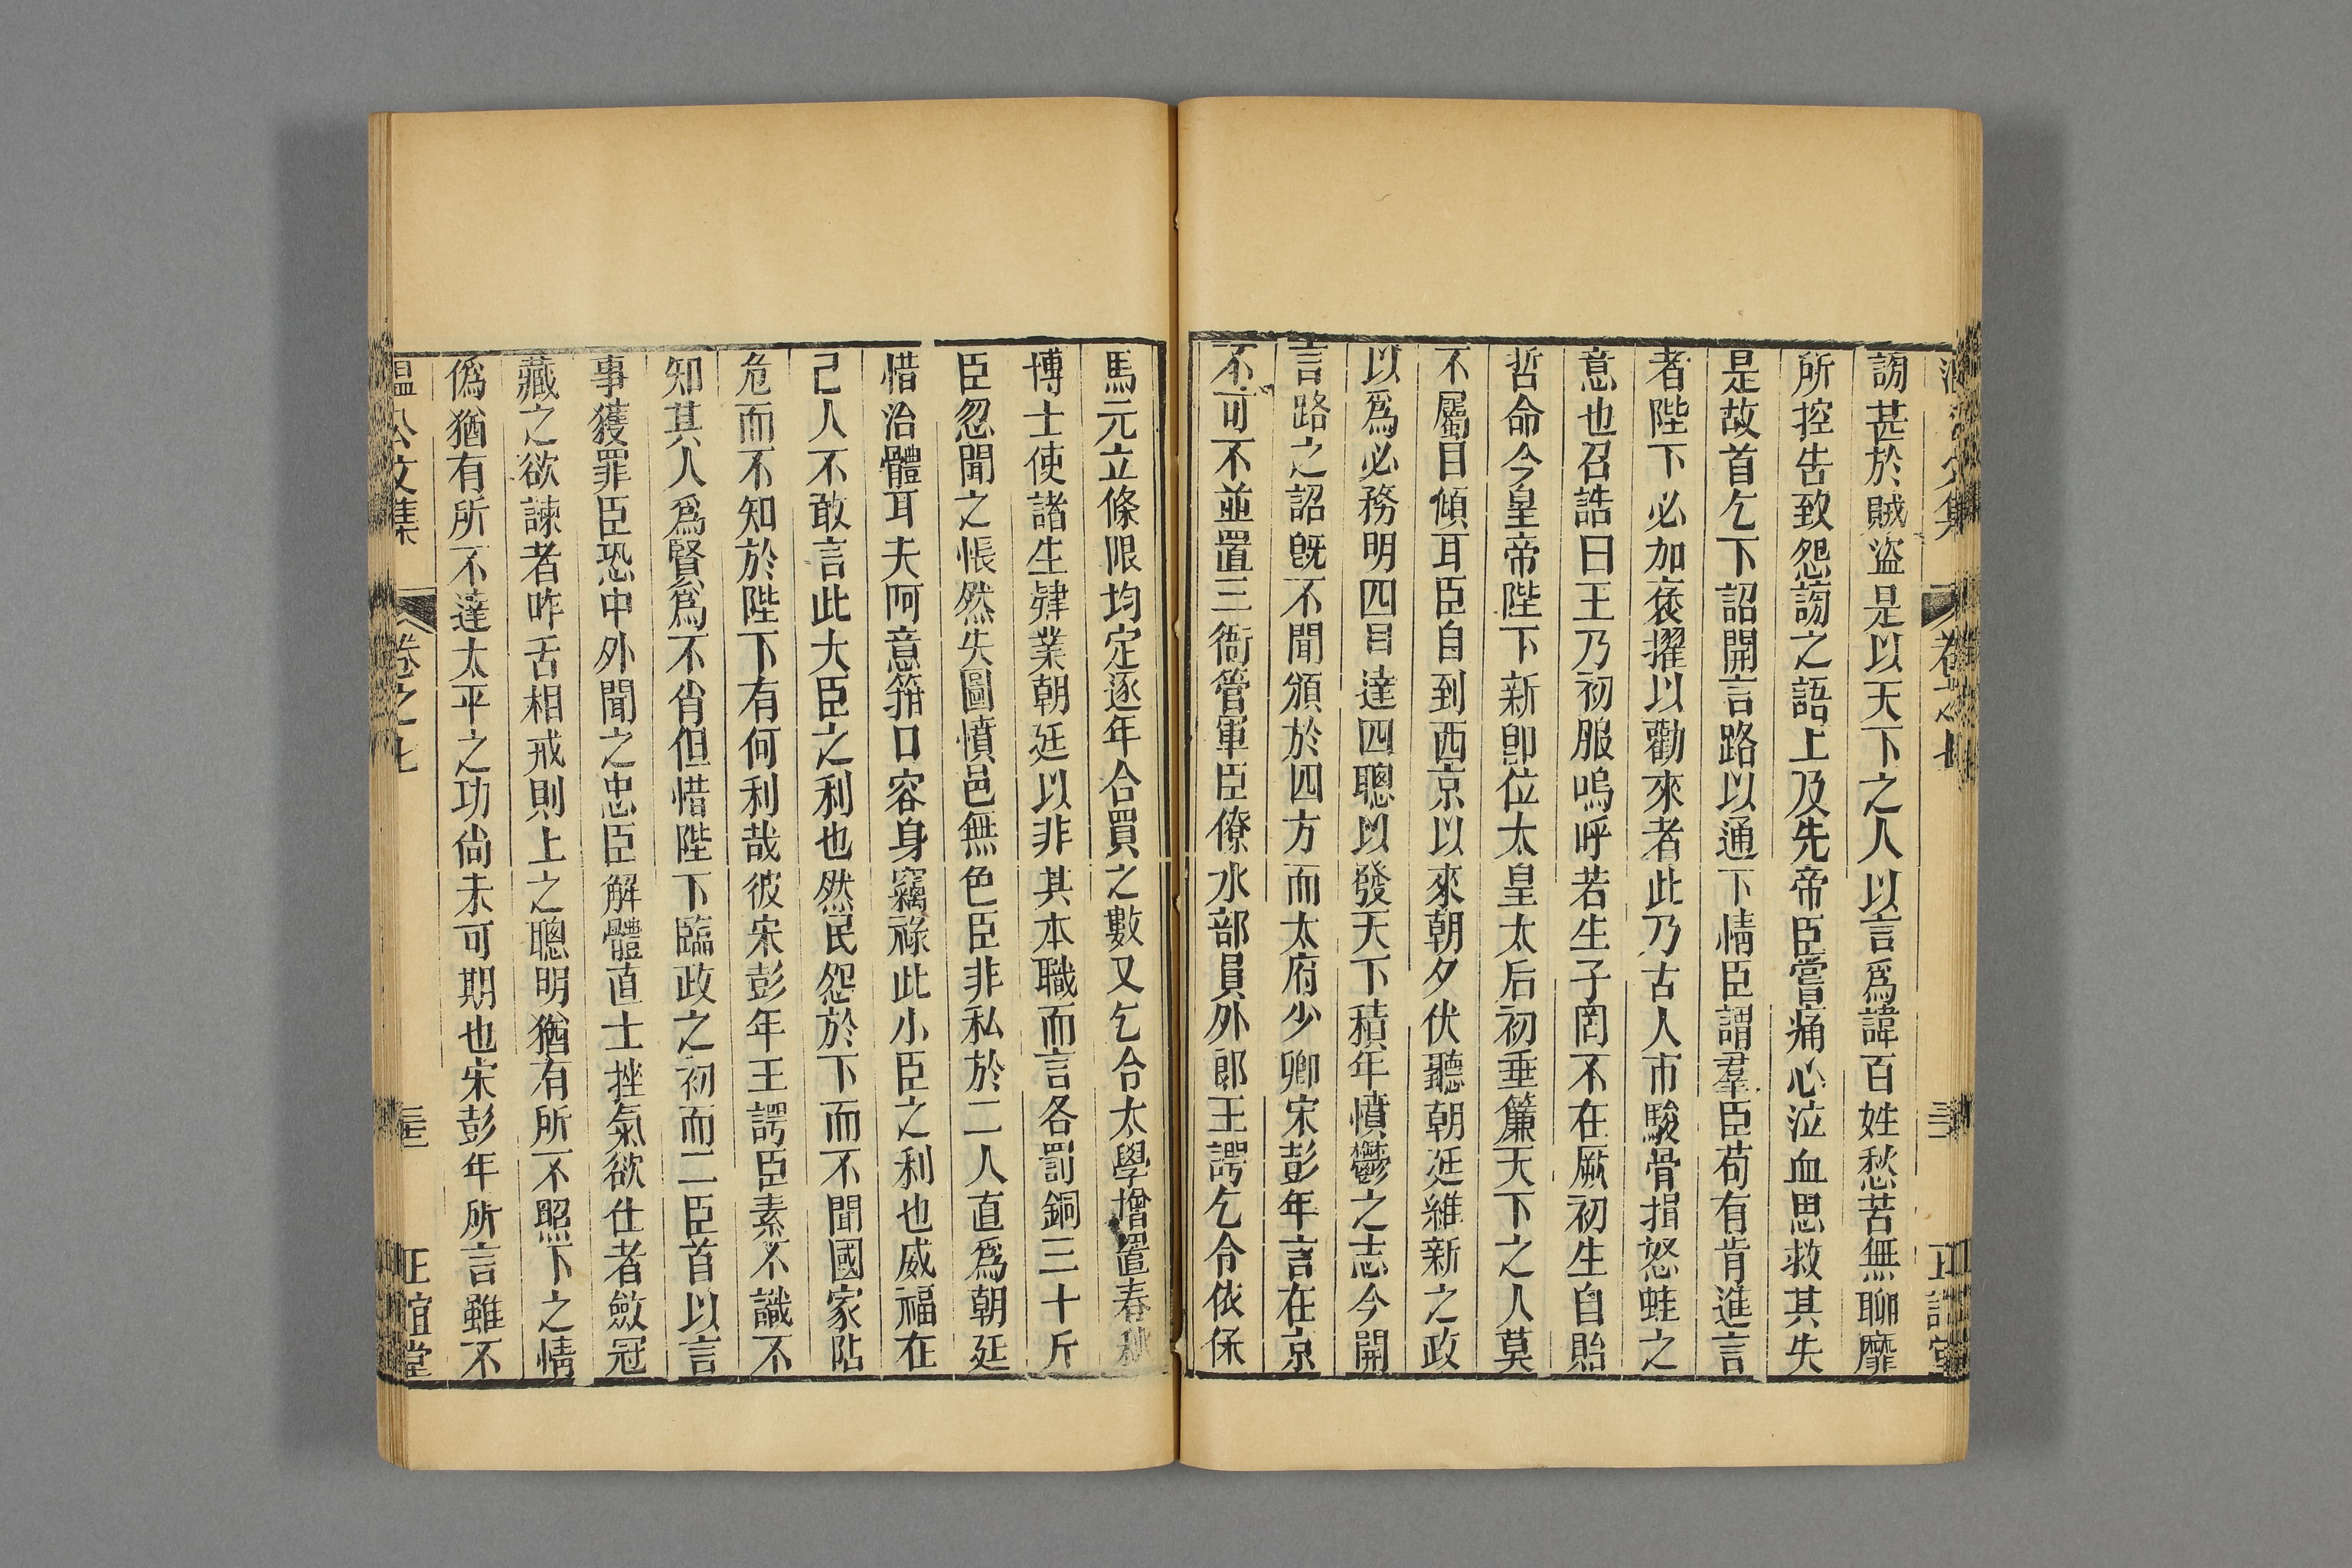 謗甚於賊盜是以天下之人以言爲諱百姓愁苦無聊靡
所控告致怨謗之語上及先帝臣嘗痛心泣血思救其失
是故首乞下詔開言路以通下情臣謂羣臣苟有肯進言
者陛下必加褒擢以勸來者此乃古人市駿骨揖怒蛙之
意也召誥曰王乃初服嗚呼若生子罔不在厥初生自貽
哲命今皇帝陛下新卽位太皇太后初垂簾天下之人莫
不屬目傾耳臣自到西京以來朝夕伏聽朝廷維新之政
以爲必務明四目達四聰以發天下積年憤鬱之志今開
言路之詔旣不聞頒於四方而太府少卿宋彭年言在京
不可不並置三衙管軍臣僚水部員外郎王諤乞令依保
馬元立條限均定逐年合買之數又乞令太學增置春秋
博士使諸生肄業朝廷以非其本職而言各罰銅三十斤
臣忽聞之悵然失圖憤邑無色臣非私於二人直爲朝廷
惜治體耳夫阿意箝口容身竊祿此小臣之利也威福在
己人不敢言此大臣之利也然民怨於下而不聞國家阽
危而不知於陛下有何利哉彼宋彭年王諤臣素不識不
知其人爲賢爲不肖但惜陛下臨政之初而二臣首以言
事獲罪臣恐中外聞之忠臣解體直士挫氣欲仕者斂冠
藏之欲諫者咋舌相戒則上之聰明猶有所不照下之情
僞猶有所不達太平之功尙未可期也宋彭年所言雖不
溫公文集 卷之七 正誼堂